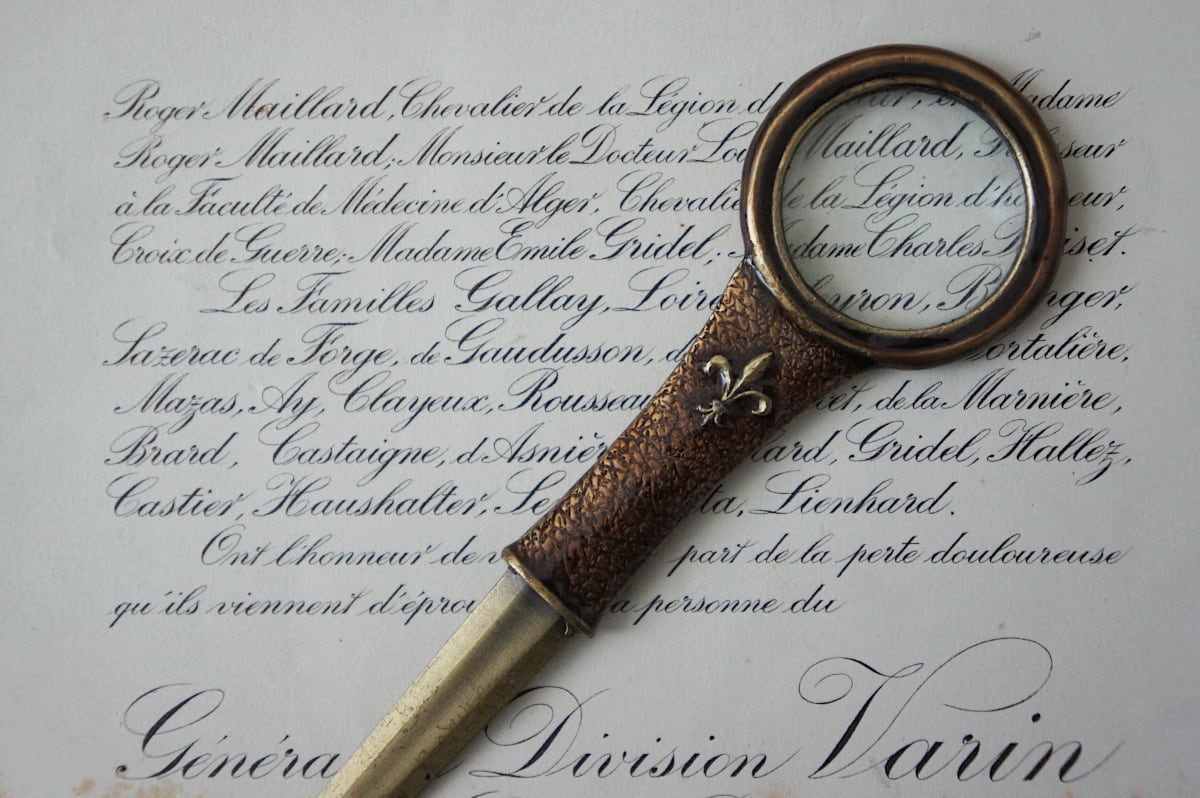 Roger Maillard, Chevalier de la Légion d Madame
Roger Maillard; Monsieur le Docteur Lou Maillard, Professeur
à la Faculté de Médecine d'Alger, Chevalie de la Légion d'honneur,
Croix de Guerre; Madame Emile Gridel, Madame Charles
Les Familles Gallay,
Lazerac de Forge, de Gaudusson, ortalière,
Mazas, Ay, Clayeux, Rousseau de la Marnière,
Brard, Castaigne, d'Asniè ard, Gridel, Hallez,
Castier, Haushalter, Se ta, Lienhard.
Ont l'honneur de part de la perte douloureuse
qu'ils viennent d'éprou a personne du
Généra Division Varin